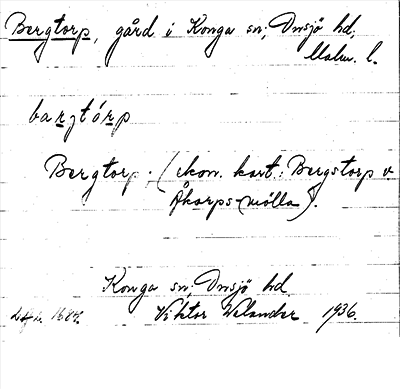 Bergtorp, gård i Konga sn, Onsjö hd,
Malm. l.
bargtórp
Bergtorp. (ekon. kart.: Bergstorp v.
Åkarps mölla).
Konga sn, Onsjö hd
1684. Viktor Welander 1936.